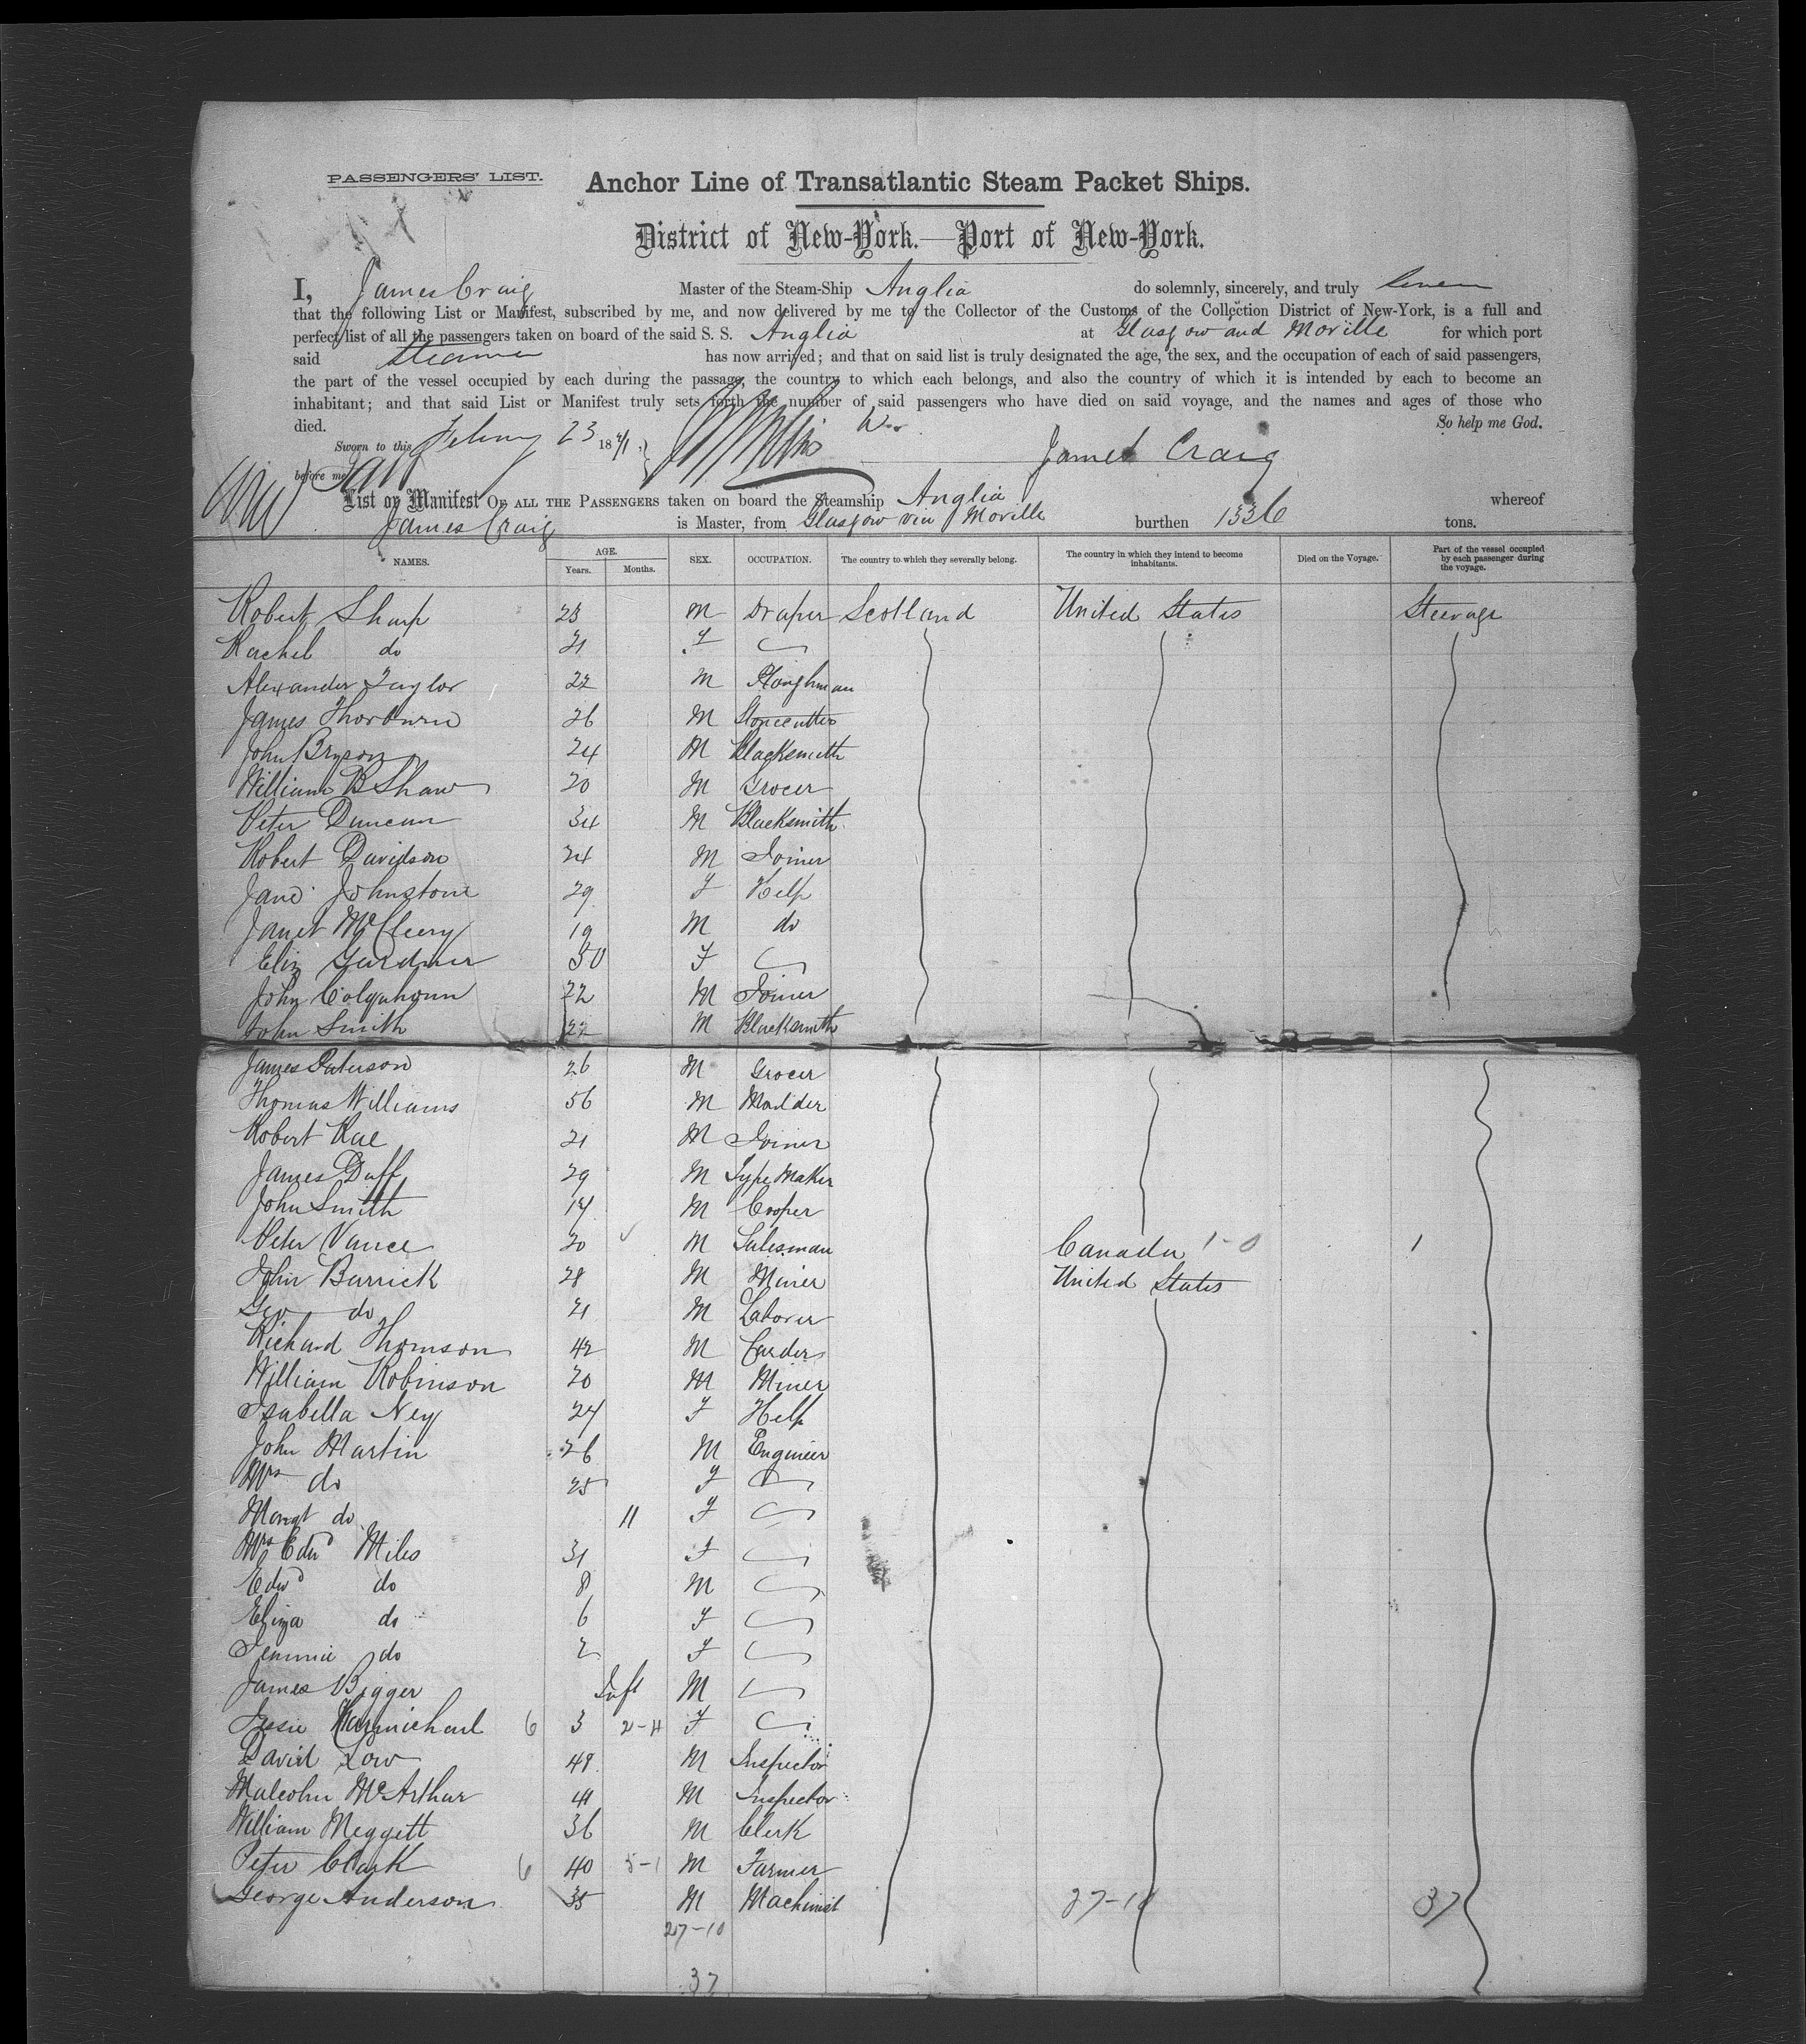 PASSENGERS' LIST.
Anchor Line of Transatlantic Steam Packet Ships.
District of New-York.—Port of New-York.
I, James Craig Master of the Steam-Ship Anglia do solemnly, sincerely, and truly
that the following List or Manifest, subscribed by me, and now delivered by me to the Collector of the Customs of the Collection District of New-York, is a full and
perfect list of all the passengers taken on board of the said S. S. Anglia at Glasgow and Moville for which port
said Steamer has now arrived; and that on said list is truly designated the age, the sex, and the occupation of each of said passengers,
the part of the vessel occupied by each during the passage, the country to which each belongs, and also the country of which it is intended by each to become an
inhabitant; and that said List or Manifest truly sets forth the number of said passengers who have died on said voyage, and the names and ages of those who
died. So help me God.
Sworn to this 23 18
before me James Craig
List or Manifest OF ALL THE PASSENGERS taken on board the Steamship Anglia whereof
James Craig is Master, from Glasgow via Moville burthen 1336 tons.
NAMES. AGE. Years. Months. SEX. OCCUPATION. The country to which they severally belong. The country in which they intend to become inhabitants. Died on the Voyage. Part of the vessel occupied by each passenger during the voyage.
Robert Sharp 23 M Draper Scotland United States Steerage
Rachel do 21 F
Alexander Taylor 22 M Ploughman
James Thorburn 26 M Stonecutter
John Bryson 24 M Blacksmith
William B Shaw 20 M Grocer
Peter Duncan 34 M Blacksmith
Robert Davidson 24 M Joiner
Jane Johnstone 29 F Help
Janet McCleery 19 M do
Eliz Gardner 30 F
John Colquhoun 22 M Joiner
John Smith 22 M Blacksmith
James Paterson 26 M Grocer
Thomas Williams 56 M Moulder
Robert Rae 21 M Joiner
James Duff 29 M Type Maker
John Smith 14 M Cooper
Peter Vance 20 M Salesman Canada 1-0 1
John Barrick 28 M Miner United States
Geo do 21 M Laborer
Richard Thomson 42 M Carder
William Robinson 20 M Miner
Isabella Ney 24 F Help
John Martin 26 M Engineer
Mrs do 25 F
Margt do 11 F
Mrs Edwd Miles 31 F
Edwd do 8 M
Eliza do 6 F
Jemmie do 2 F
James Bigger Inft M
Jessie Carmichael 6 3 2-11 F
David Low 48 M Inspector
Malcolm McArthur 41 M Inspector
William Meggett 36 M Clerk
Peter Clark 6 40 5-1 M Farmer
George Anderson 35 M Machinist 27-10 37
27-10
37